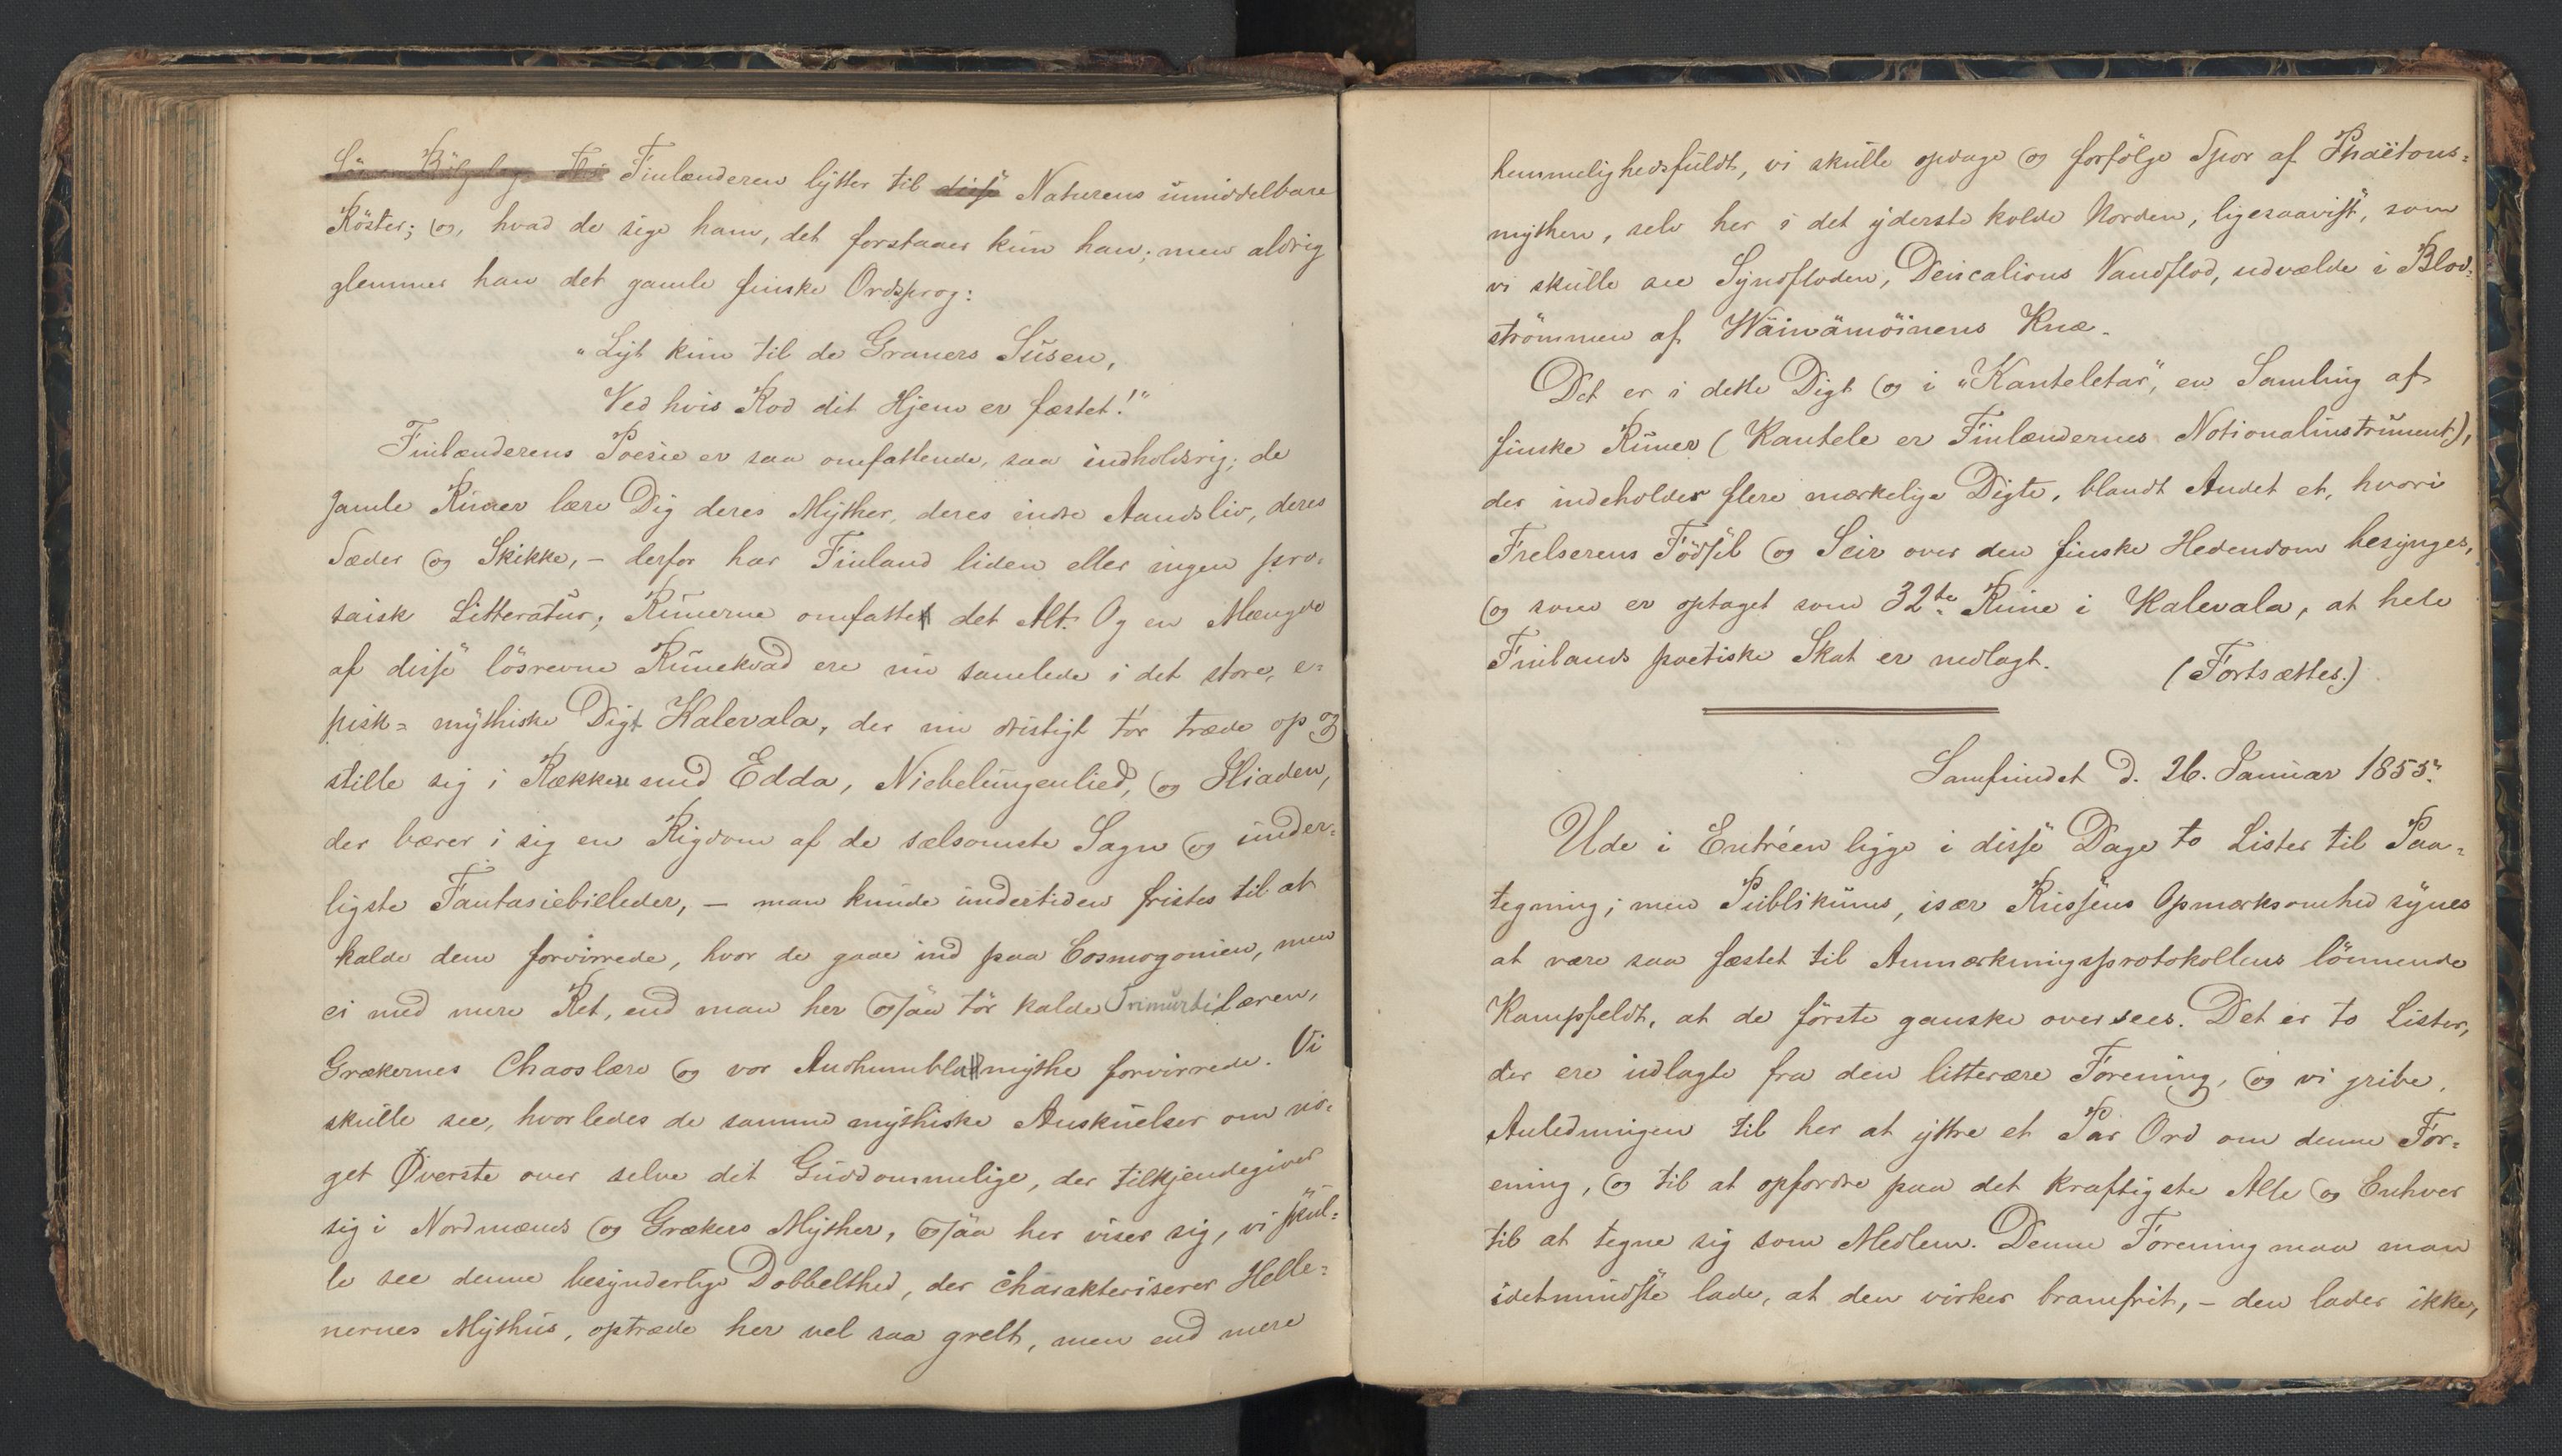 Finlænderen lytter til disse Naturens umiddelbare
Röster; og, hvad de sige ham, det forstaaer kun han; men aldrig
glemmer han det gamle finske Ordsprog:
"Lyt kun til de Graners Susen,
Ved hvis Rod dit Hjem er fæstet!"
Finlænderens Poesie er saa omfattende, saa indholdsrig; de
gamle Runer lære Dig deres Myther, deres indre Aandsliv, deres
Sæder og Skikke, – derfor har Finland liden eller ingen pro-
saisk Litteratur; Runerne omfatte det Alt. Og en Mængde
af disse lösrevne Runekvad ere nu samlede i det store, e=
pisk=mythiske Digt Kalevala, der nu dristigt tör træde op og
stille sig i Række med Edda, Niebelungenlied, og Iliaden,
der bærer i sig en Rigdom af de sælsomste Sagn og under=
ligste Fantasiebilleder, – man kunde undertiden fristes til at
kalde dem forvirrede, hvor de gaae ind paa Cosmogonien, men
ei med mere Ret, end man her ogsaa tör kalde Trimurtilæren,
Grækernes Chaoslære og vor Audhumblamythe forvirrede. Vi
skulle see, hvorledes de samme mythiske Anskuelser om no-
get Øverste over selve det Guddommelige, der tilkjendegiver
sig i Nordmænds og Grækers Myther, ogsaa her viser sig, vi skul=
le see denne besynderlige Dobbelthed, der charakteriserer Helle=
nernes Mythus, optræde her vel saa grelt, men end mere
hemmelighedsfuldt, vi skulle opdage og forfölge Spor af Phaëtons=
mythen, selv her i det yderste kolde Norden, ligesaavist, som
vi skulle see Syndfloden, Deucalions Vandflod, udvælde i Blod=
strömmen af Wäinämöinens Knæ.
Det er i dette Digt og i "Kanteletar", en Samling af
finske Runer (Kantele er Finlændernes Nationalinstrument),
der indeholder flere mærkelige Digte, blandt Andet et, hvori
Frelserens Födsel og Seir over den finske Hedendom besynges,
og som er optaget som 32te Rune i Kalevala, at hele
Finlands poetiske Skat er nedlagt. (Fortsættes.)
Samfundet d. 26. Januar 1855.
Ude i Entréen ligge i disse Dage to Lister til Paa=
tegning; men Publikums, især Russens Opmærksomhed synes
at være saa fæstet til Anmærkningsprotokollens lönnende
Kampfeldt, at de förste ganske oversees. Det er to Lister,
der ere udlagte fra den litterære Forening, og vi gribe
Anledningen til her at yttre et Par Ord om denne For=
ening, og til at opfordre paa det kraftigste Alle og Enhver
til at tegne sig som Medlem. Denne Forening maa man
idetmindste lade, at den virker bramfrit, – den lader ikke,